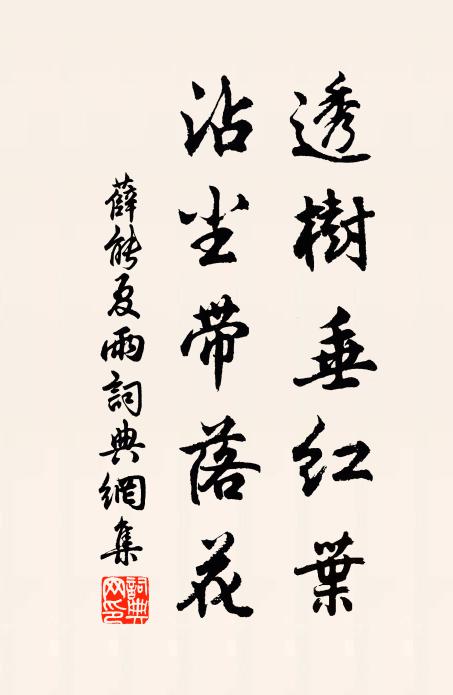 透樹垂紅葉
沾尘帶落花
薛能夏雨詞典網集
詞典网印